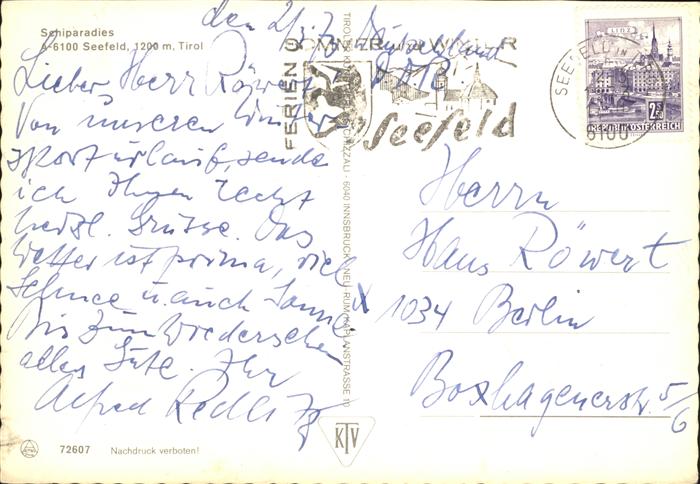 Schiparadies
A-6100 Seefeld, 1200 m, Tirol
den
Lieber Herr Röwert
Von unserem Winter
sporturlaub, sende
ich Ihnen recht
herzl. Grüsse. Das
Wetter ist prima, viel
Schnee u. auch Sonne.
Bis zum Wiedersehen
alles Gute. Ihr
Alfred Redlitz
72607 Nachdruck verboten!
6040 INNSBRUCK-NEU RUM, KAPLANSTRASSE 10
KTV
FERIEN
SOMMER WINTER
Seefeld
SEEFELD IN
6100
LINZ
2.50
REPUBLIK ÖSTERREICH
Deutschland
DDR
Herrn
Hans Röwert
X 1034 Berlin
Boxhagenerstr. 5/6